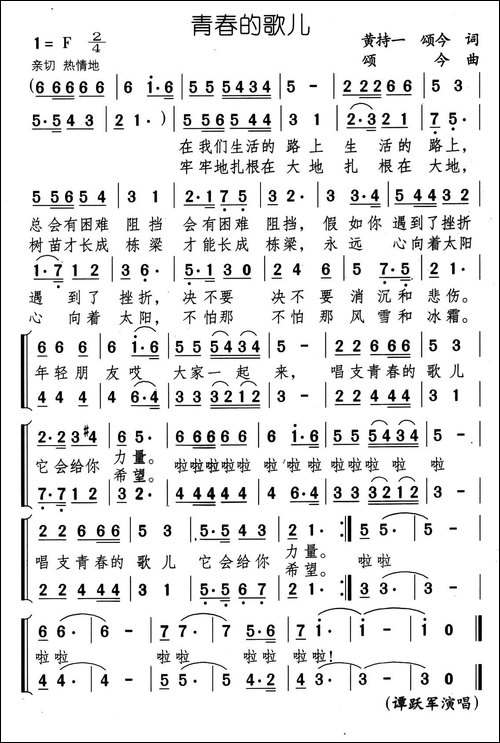 青春的歌儿
1=F 2/4 黄持一 颂今 词
亲切 热情地 颂 今 曲
(6 6666 | 6 1·6 | 55 5434 | 5 - | 2 2266 | 5 3 |
5·5 43 | 21·) | 55 5543 | 21· | 2·3 21 | 75· |
在我们生活的 路上 生 活的 路上,
牢牢地扎根在 大地 扎 根在 大地,
55 654 | 3 1 | 2·1 75 | 3 2 | 3 3·4 | 5 54 |
总会有困难 阻挡 会有困难 阻挡, 假如你 遇到了挫折
树苗才长成 栋梁 才能长成 栋梁, 永远 心向着太阳
1·7 12 | 36· | 5·1 30 | 24 02 | 5 75 | 21· |
遇 到了 挫折, 决不要 决不要 消沉和 悲伤。
心 向着 太阳, 不怕那 不怕那 风雪和 冰霜。
66 66 | 6 1·6 | 55 5434 | 5 - | 22 666 | 5 3
年轻朋 友哎 大家一起 来, 唱支青春的 歌儿
44 44 | 4 6·4 | 33 3212 | 3 - | 22 444 | 3 1
2·2 3#4 | 65· | 66 666 | 6 1·6 | 55 5434 | 5 5
它会给你 力量。 啦啦啦啦啦 啦 啦 啦啦啦 啦 啦
希望。
7·7 12 | 32· | 44 444 | 4 6·4 | 33 3212 | 3 3
22 666 | 5 3 | 5·5 43 | 21· :| 55· | 5 -
唱支青春的 歌儿 它会给你 力量。 啦啦
希望。
22 444 | 3 1 | 5·5 67 | 21· :| 33· | 3 -
66· | 6 - | 77· | 5·6 | 71· | 1 - | 1 0
啦啦 啦啦 啦啦 啦啦!
44· | 4 - | 55· | 5·6 | 73· | 3 - | 3 0
(谭跃军演唱)